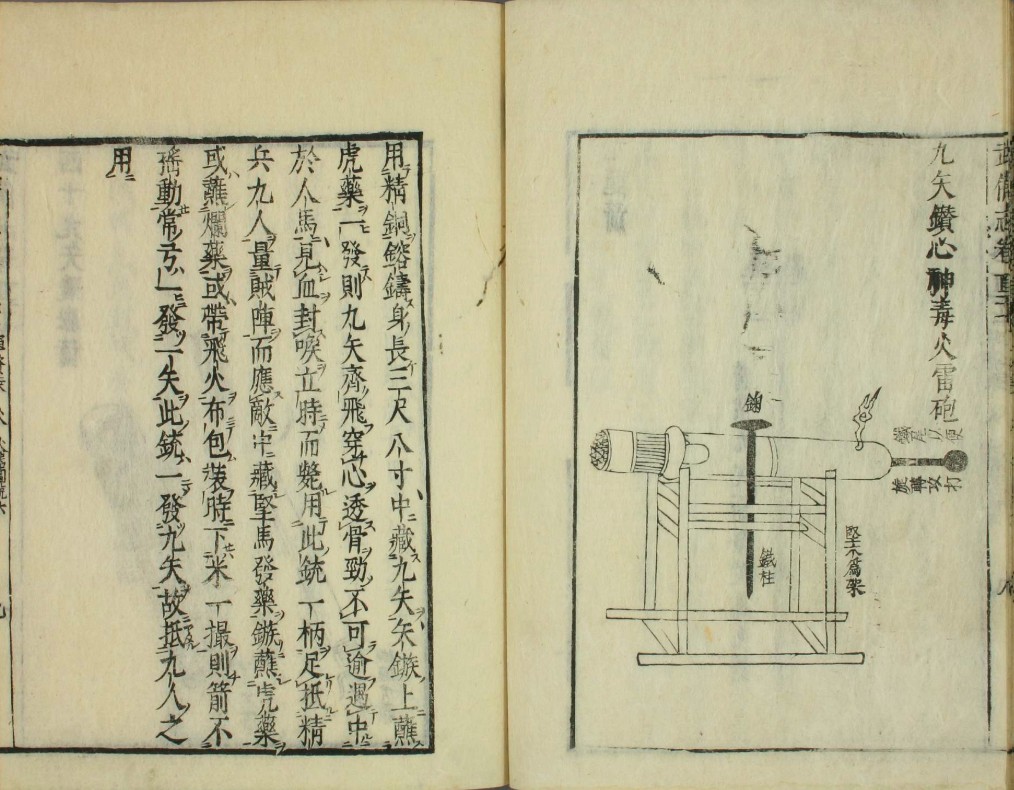 武備志卷百二十
九矢鑽心神毒火雷砲
鐵尾以便
旋轉攻打
堅木爲架
鐵柱
用精銅鎔鑄身長三尺八寸中藏九矢矢鏃上蘸
虎藥一發則九矢齊飛穿心透骨勁不可逾遇中
於人馬見血封喉立時而斃用此銃一柄足抵精
兵九人量賊陣而應敵中藏堅馬發藥鏃蘸虎藥
或蘸爛藥或帶飛火布包裝時下米一撮則箭不
搖動常弓一發一矢此銃一發九矢故抵九人之
用